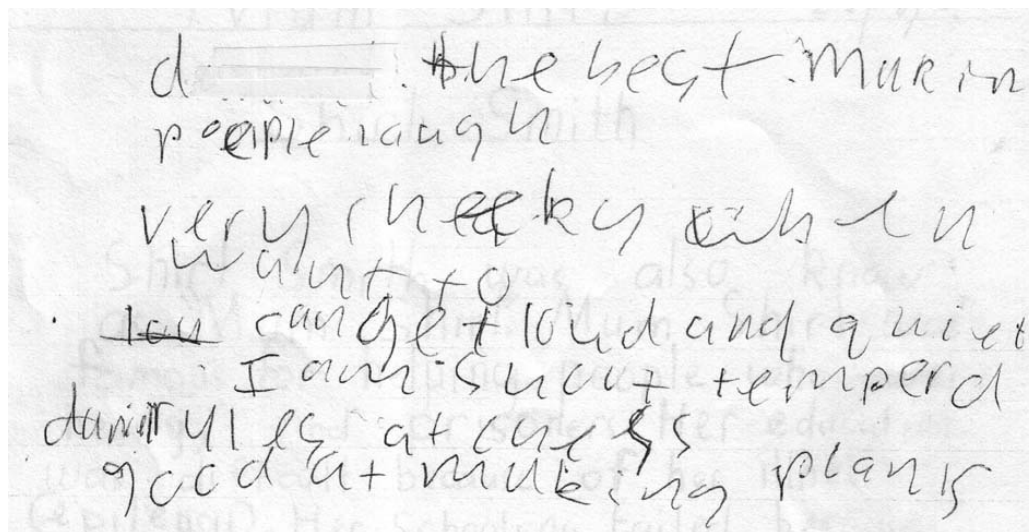 d the best makin
people laugh
very cheeky when
want to
can get loud and quiet
I am short temperd
rules at chess
good at making plans